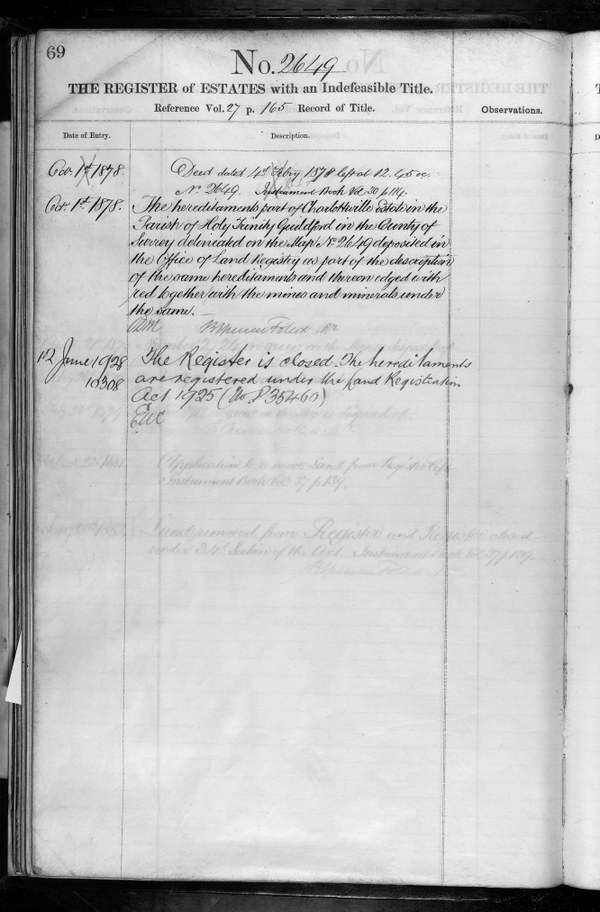 69
No. 2649
THE REGISTER of ESTATES with an Indefeasible Title.
Reference Vol. 27 p. 165 Record of Title.
Observations.
Date of Entry.
Description.
Oct. 1st 1878.
Deed dated 4th 1878 left at 12.45
No. 2649. Instrument Book Vol. 30 p. 114.
Oct. 1st 1878.
The hereditaments part of Charlotteville Estate in the
Parish of Holy Trinity Guildford in the County of
Surrey delineated on the Map No. 2649 deposited in
the Office of Land Registry as part of the description
of the same hereditaments and thereon edged with
red together with the mines and minerals under
the same. —
12 June 1928
10308
The Register is closed. The hereditaments
are registered under the Land Registration
Act 1925 (No. P 35460)